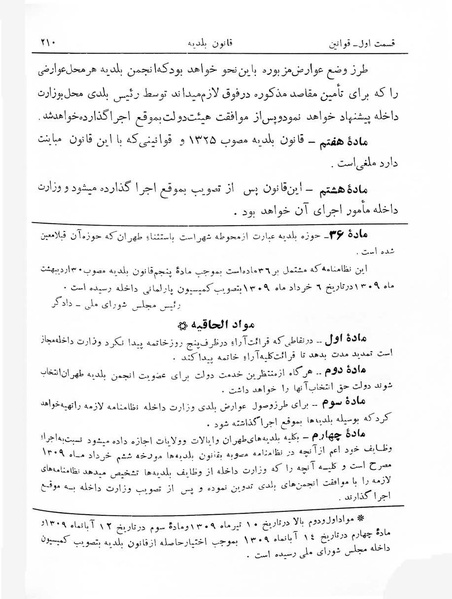 قسمت اول ـ قوانین قانون بلدیه ۲۱۰
طرز وضع عوارض مزبوره باین نحو خواهد بود که انجمن بلدیه هر محل عوارضی
را که برای تأمین مقاصد مذکوره در فوق لازم میداند توسط رئیس بلدی محل بوزارت
داخله پیشنهاد خواهد نمود و پس از موافقت هیئت دولت بموقع اجرا گذارده خواهد شد.
مادهٔ هفتم ـ قانون بلدیه مصوب ۱۳۲۵ و قوانینی که با این قانون مباینت
دارد ملغی است.
مادهٔ هشتم ـ این قانون پس از تصویب بموقع اجرا گذارده میشود و وزارت
داخله مأمور اجرای آن خواهد بود.
مادهٔ ۳۶ـ حوزه بلدیه عبارت از محوطه شهر است باستثناء طهران که حوزه آن قبلا معین
شده است.
این نظامنامه که مشتمل بر ۳۶ ماده است بموجب مادهٔ پنجم قانون بلدیه مصوب ۳۰ اردیبهشت
ماه ۱۳۰۹ در تاریخ ۶ خرداد ماه ۱۳۰۹ بتصویب کمیسیون پارلمانی داخله رسیده است.
رئیس مجلس شورای ملی ـ دادگر
مواد الحاقیه *
مادهٔ اول ـ در نقاطی که قرائت آراء در ظرف پنج روز خاتمه پیدا نکرد وزارت داخله مجاز
است تمدید مدت بدهد تا قرائت کلیه آراء خاتمه پیدا کند.
مادهٔ دوم ـ هر گاه از منتظرین خدمت دولت برای عضویت انجمن بلدیه طهران انتخاب
شوند دولت حق انتخاب آنها را خواهد داشت.
مادهٔ سوم ـ برای طرز وصول عوارض بلدی وزارت داخله نظامنامه لازمه را تهیه خواهد
کرد که بوسیله بلدیه‌ها بموقع اجرا گذاشته شود.
مادهٔ چهارم ـ بکلیه بلدیه‌های طهران و ایالات و ولایات اجازه داده میشود نسبت به اجراء
وظایف خود اعم از آنچه در نظامنامه مصوبه بقانون بلدیه‌ها مورخه ششم خرداد ماه ۱۳۰۹
مصرح است و کلیه آنچه را که وزارت داخله از وظایف بلدیه‌ها تشخیص میدهد نظامنامه‌های
لازمه را با موافقت انجمن‌های بلدی تدوین نموده و پس از تصویب وزارت داخله به موقع
اجرا گذارند.
* مواد اول و دوم بالا در تاریخ ۱۰ تیر ماه ۱۳۰۹ و مادهٔ سوم در تاریخ ۱۲ آبانماه ۱۳۰۹ و
مادهٔ چهارم در تاریخ ۱۴ آبانماه ۱۳۰۹ بموجب اختیار حاصله از قانون بلدیه بتصویب کمیسیون
داخله مجلس شورای ملی رسیده است.